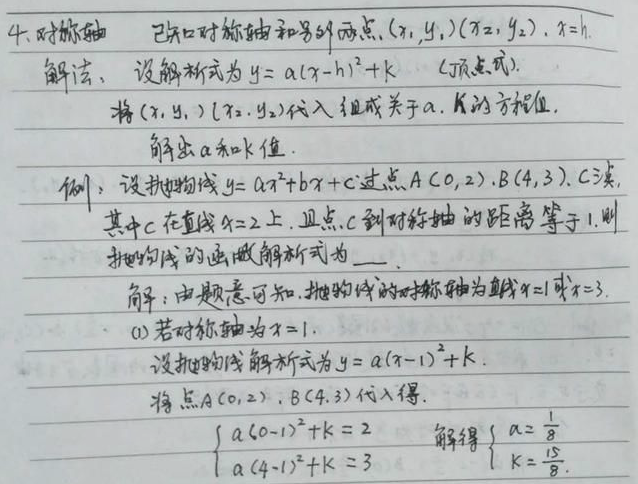 4、对称轴 已知对称轴和另外两点,(x₁,y₁)(x₂,y₂),x=h.
解法:设解析式为y=a(x-h)²+k (顶点式).
将(x₁,y₁)(x₂,y₂)代入组成关于a、k的方程组,
解出a和k值.
例:设抛物线y=ax²+bx+c过点A(0,2),B(4,3),C三点,
其中C在直线x=2上,且点C到对称轴的距离等于1,则
抛物线的函数解析式为___.
解:由题意可知,抛物线的对称轴为直线x=1或x=3.
(1)若对称轴为x=1,
设抛物线解析式为y=a(x-1)²+k.
将点A(0,2),B(4,3)代入得.
{ a(0-1)²+k=2 解得{ a=1/8
{ a(4-1)²+k=3 k=15/8.